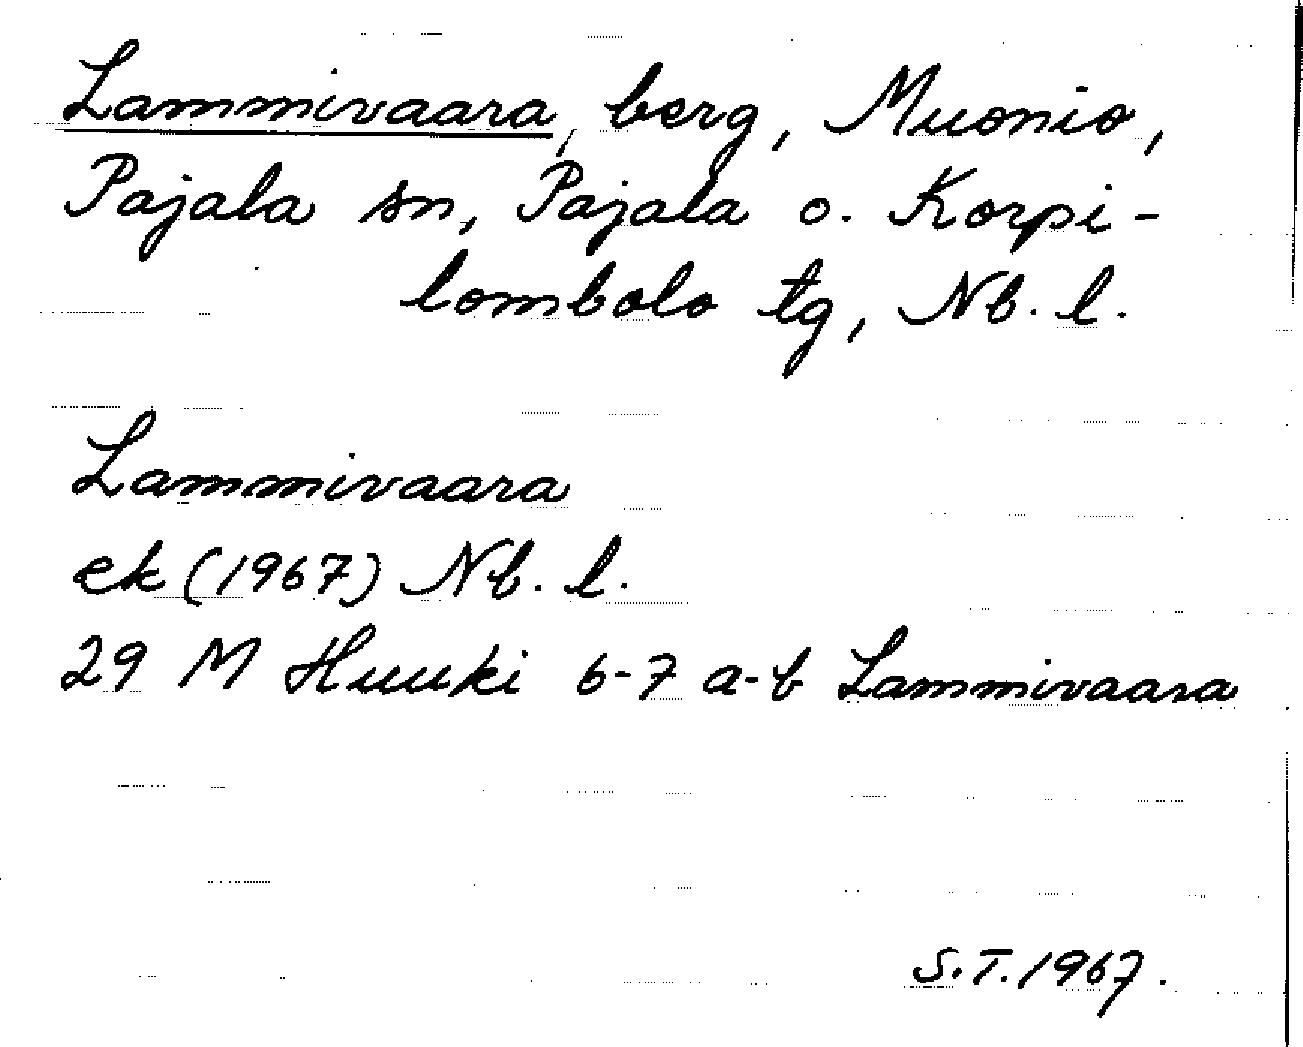 Lammivaara, berg, Muonio,
Pajala sn, Pajala o. Korpi-
lombolo tg, Nb. l.
Lammivaara
ek (1967) Nb. l.
29 M Huuki 6-7 a-b Lammivaara
S.T. 1967.